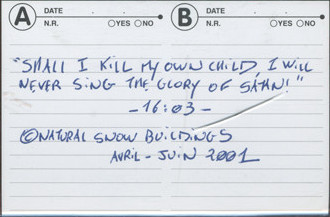 A DATE B DATE
N.R. YES NO N.R. YES NO
"SHALL I KILL MY OWN CHILD, I WILL
NEVER SING THE GLORY OF SATAN!"
- 16:03 -
©NATURAL SNOW BUILDINGS
AVRIL - JUIN 2001